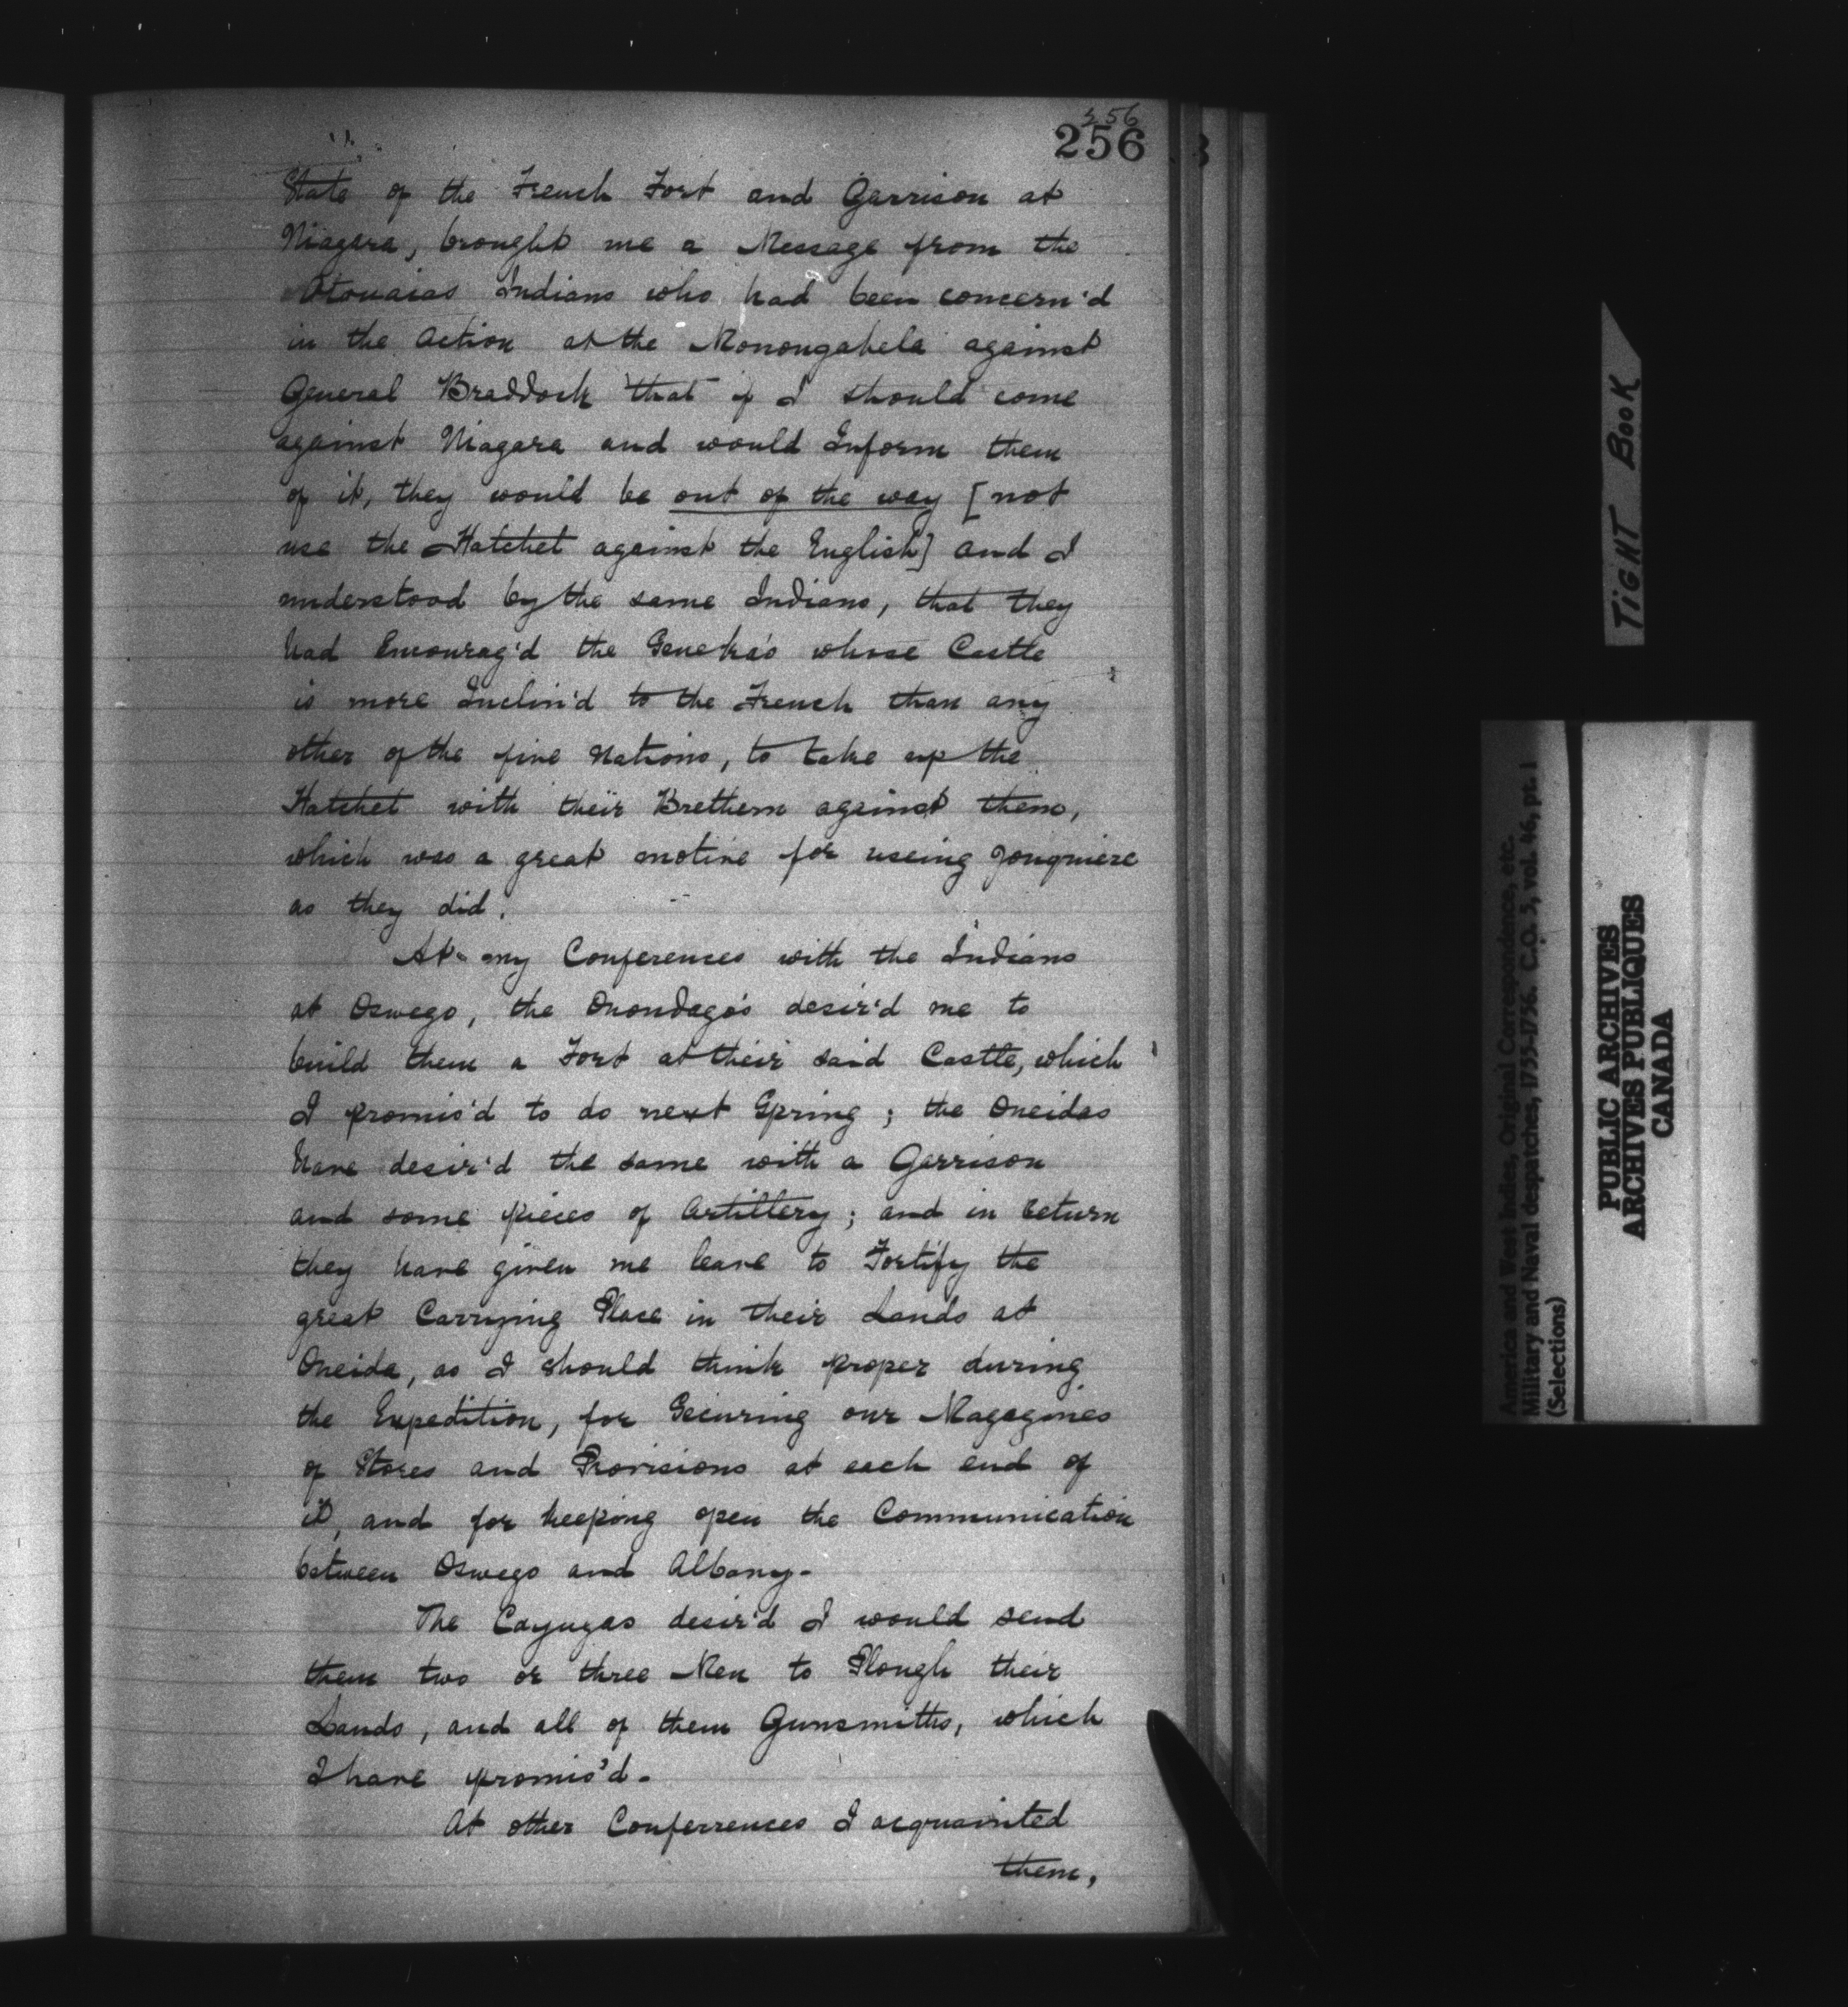 256
256
State of the French Fort and Garrison at
Niagara, brought me a Message from the
Otouaias Indians who had been concern'd
in the Action at the Monongahela against
General Braddock that if I should come
against Niagara and would Inform them
of it, they would be out of the way [not
use the Hatchet against the English] and I
understood by the same Indians, that they
had Encourag'd the Seneka's whose Castle
is more Inclin'd to the French than any
other of the five Nations, to take up the
Hatchet with their Brethern against them,
which was a great motive for useing Jonquiere
as they did.
At my Conferences with the Indians
at Oswego, the Onondago's desir'd me to
build them a Fort at their said Castle, which
I promis'd to do next Spring; the Oneidas
have desir'd the same with a Garrison
and some pieces of Artillery; and in return
they have given me leave to Fortify the
great Carrying Place in their Lands at
Oneida, as I should think proper during
the Expedition, for Securing our Magazines
of Stores and Provisions at each end of
it, and for keeping open the Communication
between Oswego and Albany.
The Cayugas desir'd I would send
them two or three Men to Plough their
Lands, and all of them Gunsmiths, which
I have promis'd.
At other Conferrences I acquainted
them,
TIGHT BOOK
America and West Indies, Original Correspondence, etc.
Military and Naval despatches, 1755-1756. C.O. 5, vol. 46, pt. 1
(Selections)
PUBLIC ARCHIVES
ARCHIVES PUBLIQUES
CANADA